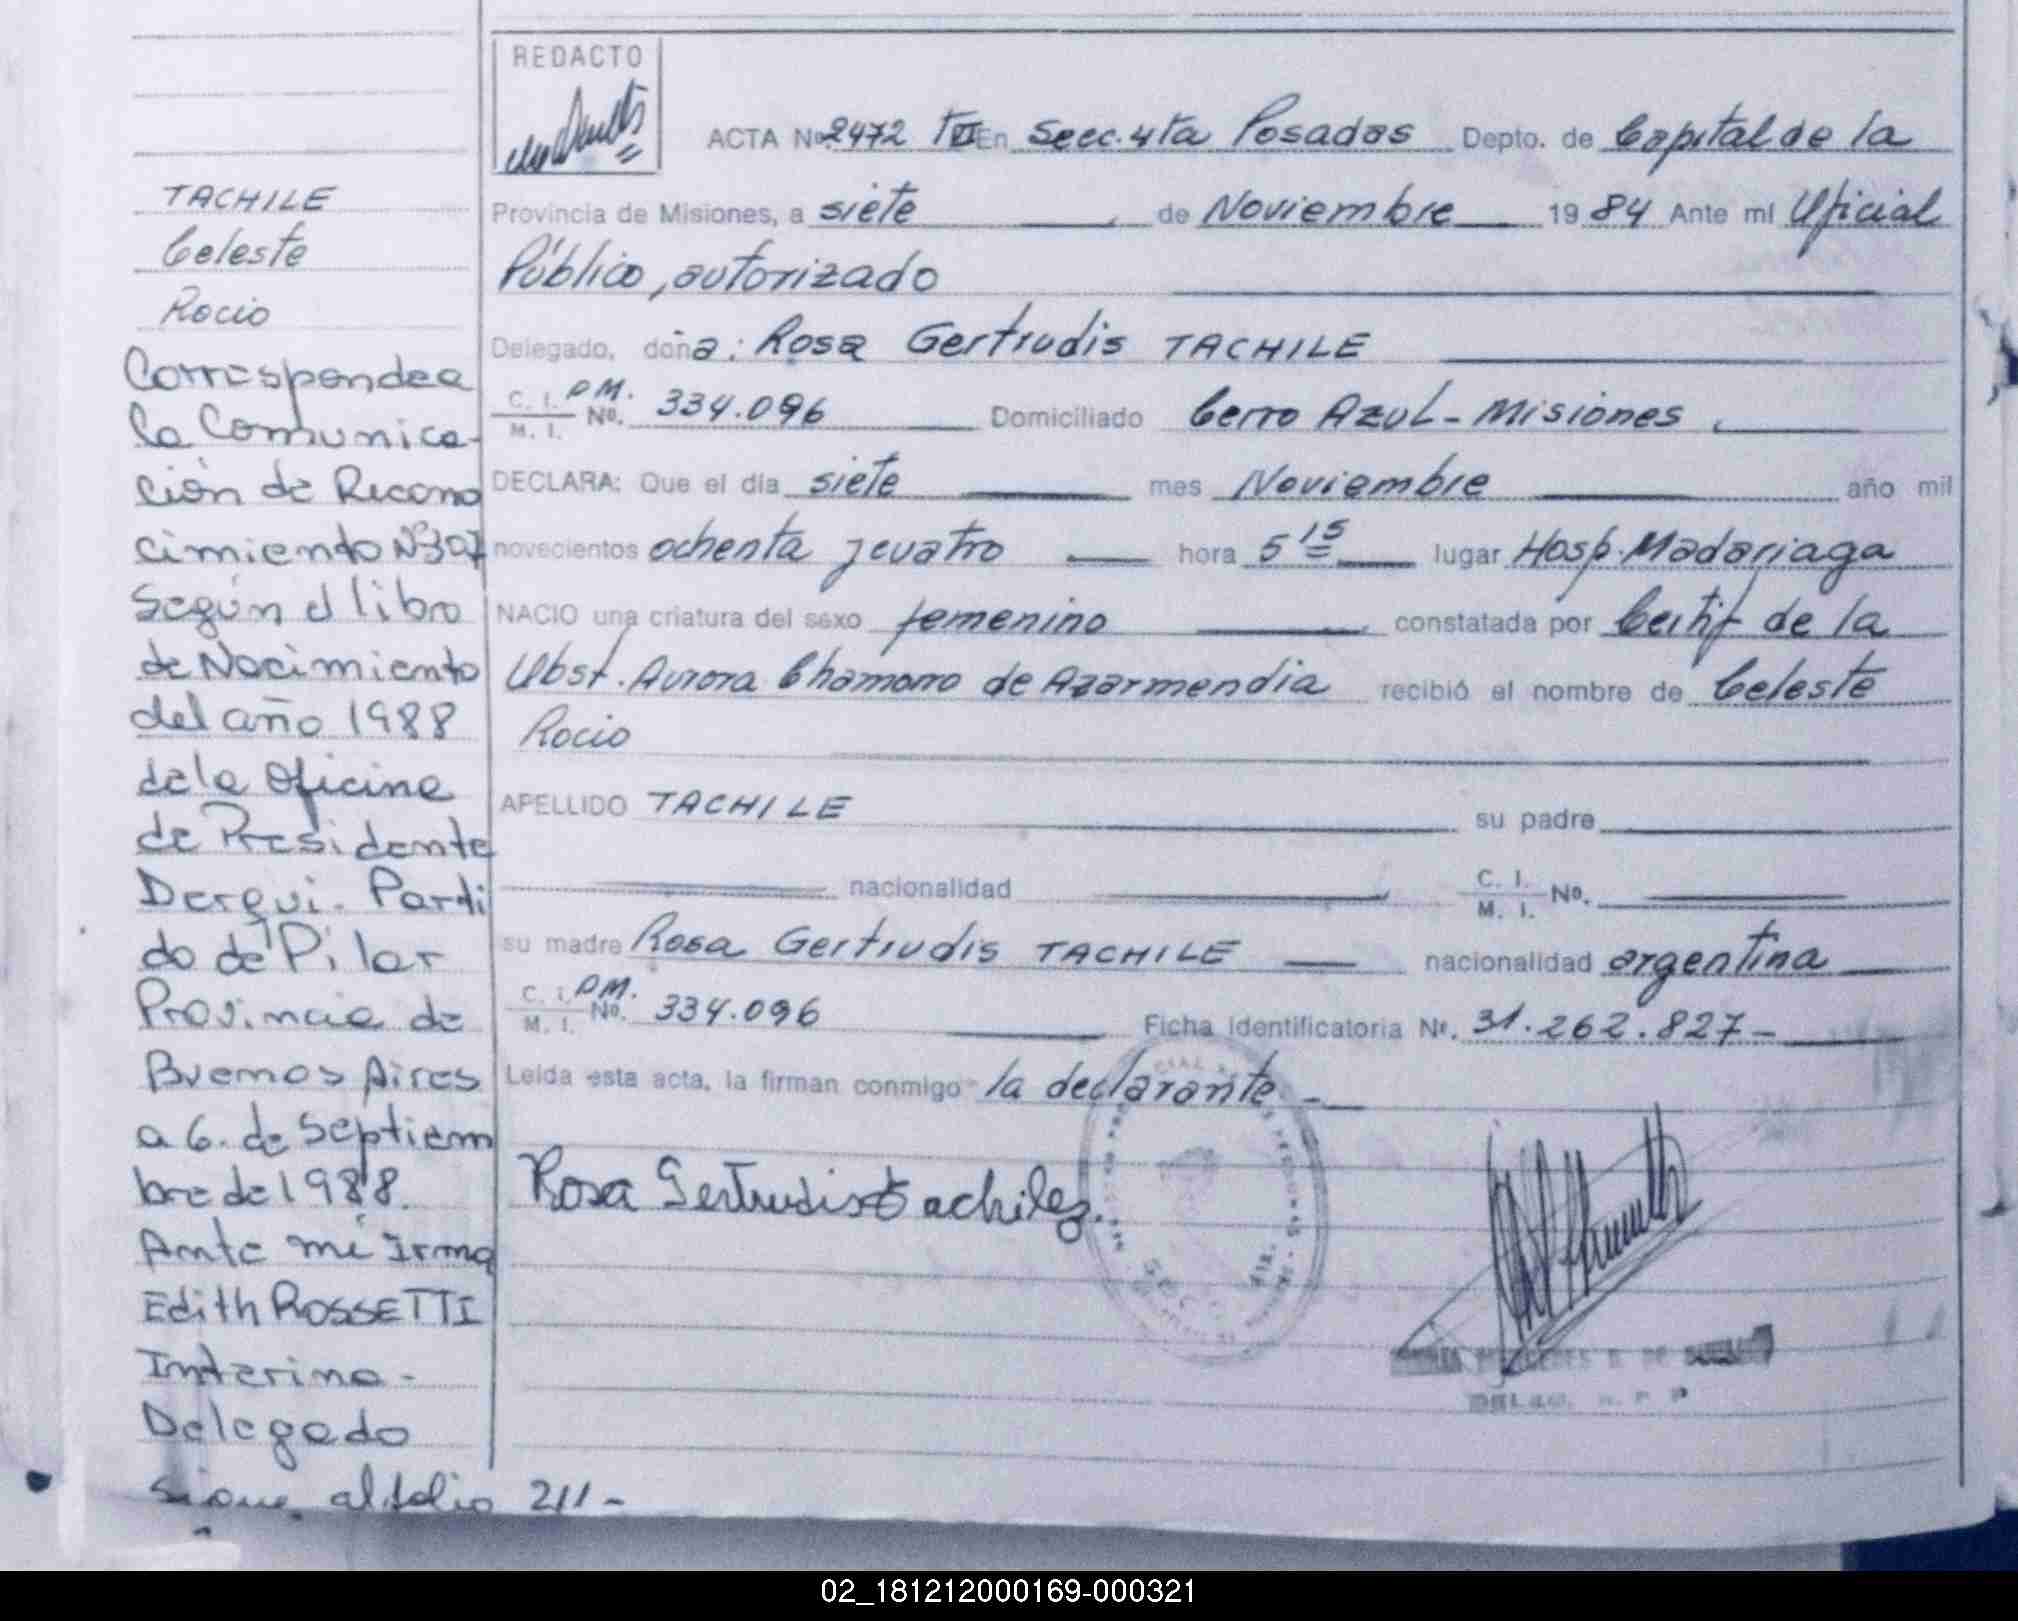 REDACTO
ACTA No. 2472 TVI En Secc. 4ta Posadas Depto. de Capital de la
Provincia de Misiones, a siete de Noviembre 19 84 Ante mi Oficial
Público, autorizado
Delegado, doña: Rosa Gertrudis TACHILE
C. I. DM.
M. I. No. 334.096 Domiciliado Cerro Azul - Misiones
DECLARA: Que el día siete mes Noviembre año mil
novecientos ochenta y cuatro hora 5 15 lugar Hosp. Madariaga
NACIO una criatura del sexo femenino constatada por Certif de la
Obst. Aurora Chamorro de Azarmendia recibió el nombre de Celeste
Rocio
APELLIDO TACHILE su padre
nacionalidad C. I. M. I. No.
su madre Rosa Gertrudis TACHILE nacionalidad argentina
C. I. DM.
M. I. No. 334.096 Ficha Identificatoria No. 31.262.827-
Leida esta acta, la firman conmigo la declarante -
Rosa Gertrudis tachile
TACHILE
Celeste
Rocio
Corresponde a
la Comunica-
ción de Recono
cimiento Nº 397
Según el libro
de Nacimiento
del año 1988
de la Oficina
de Presidente
Derqui - Parti
do de Pilar
Provincia de
Buenos Aires
a 6. de Septiem
bre de 1988.
Ante mi Irma
Edith ROSSETTI
Interina -
Delegado
Sigue al folio 211-
02_181212000169-000321